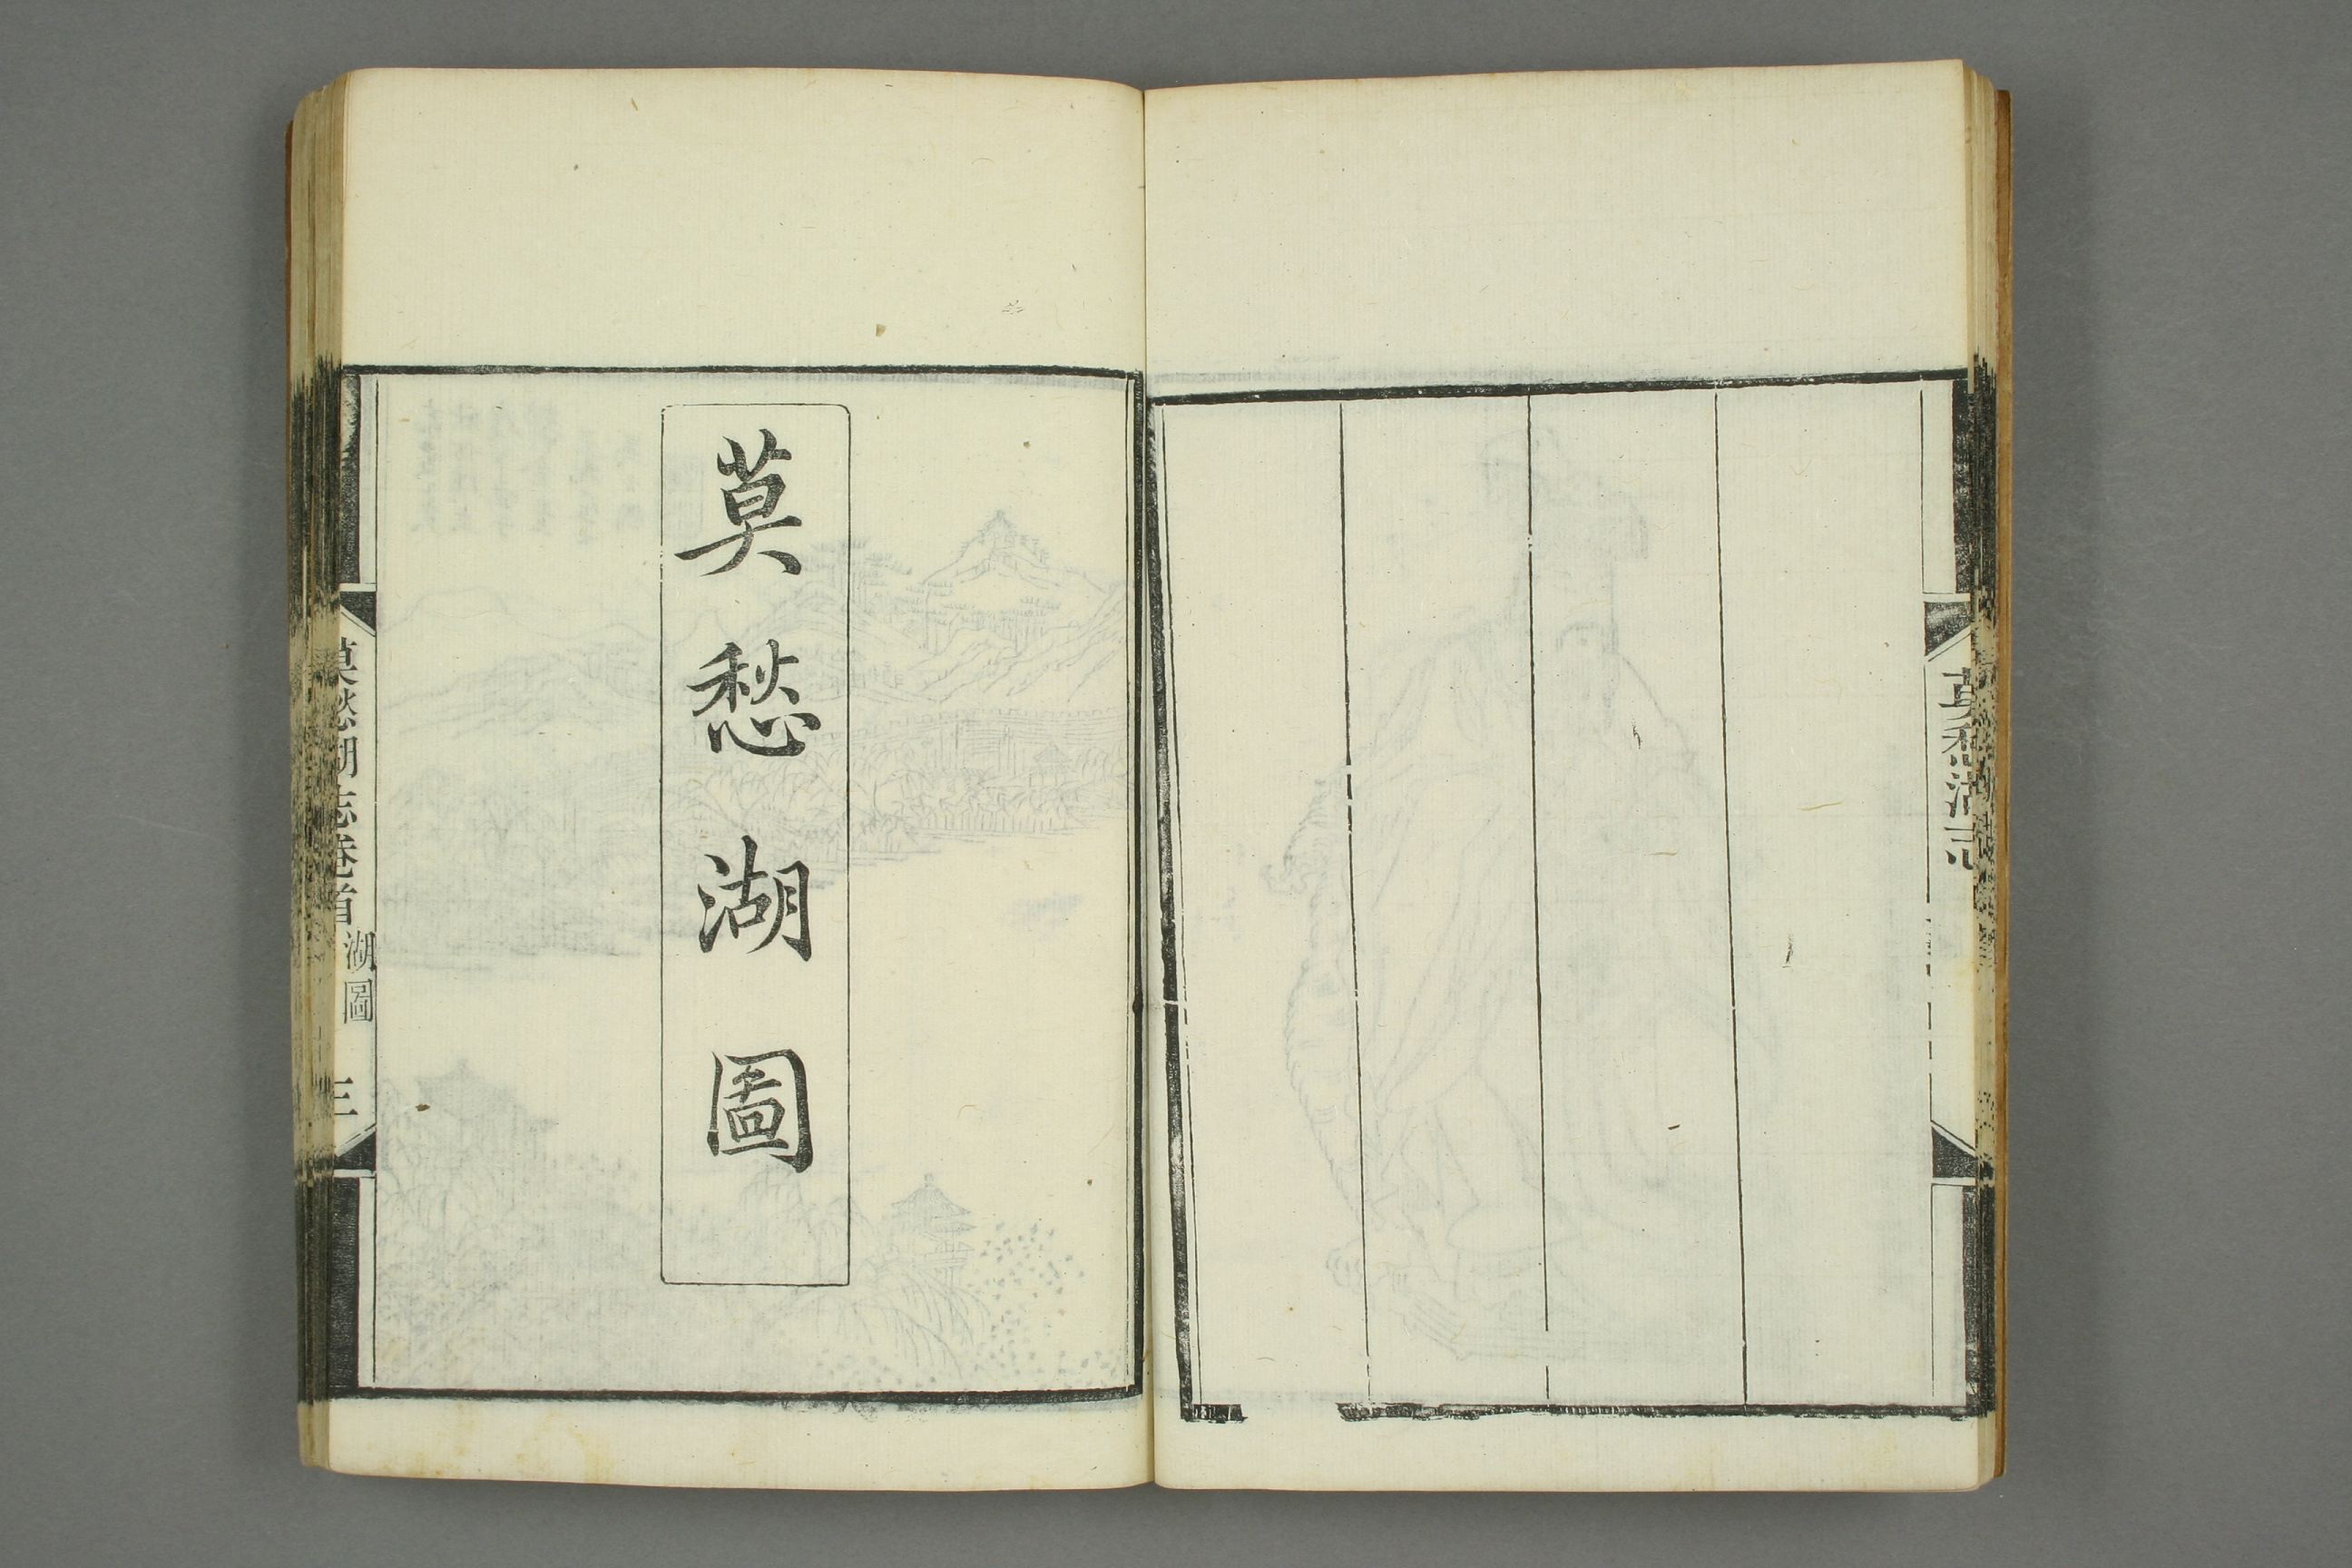 莫愁湖志
莫愁湖圖
莫愁湖志卷首 湖圖 三